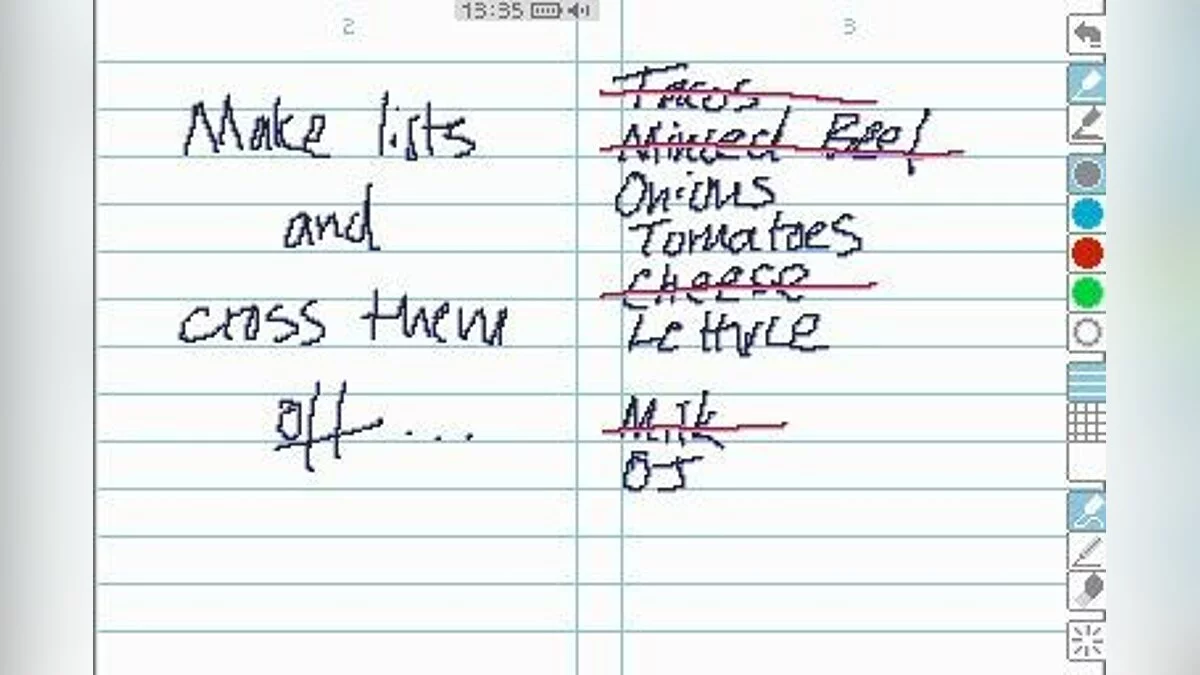 13:35
2
3
Make lists
and
cross them
off...
Tacos
Minced Beef
Onions
Tomatoes
Cheese
Lettuce
Milk
OJ